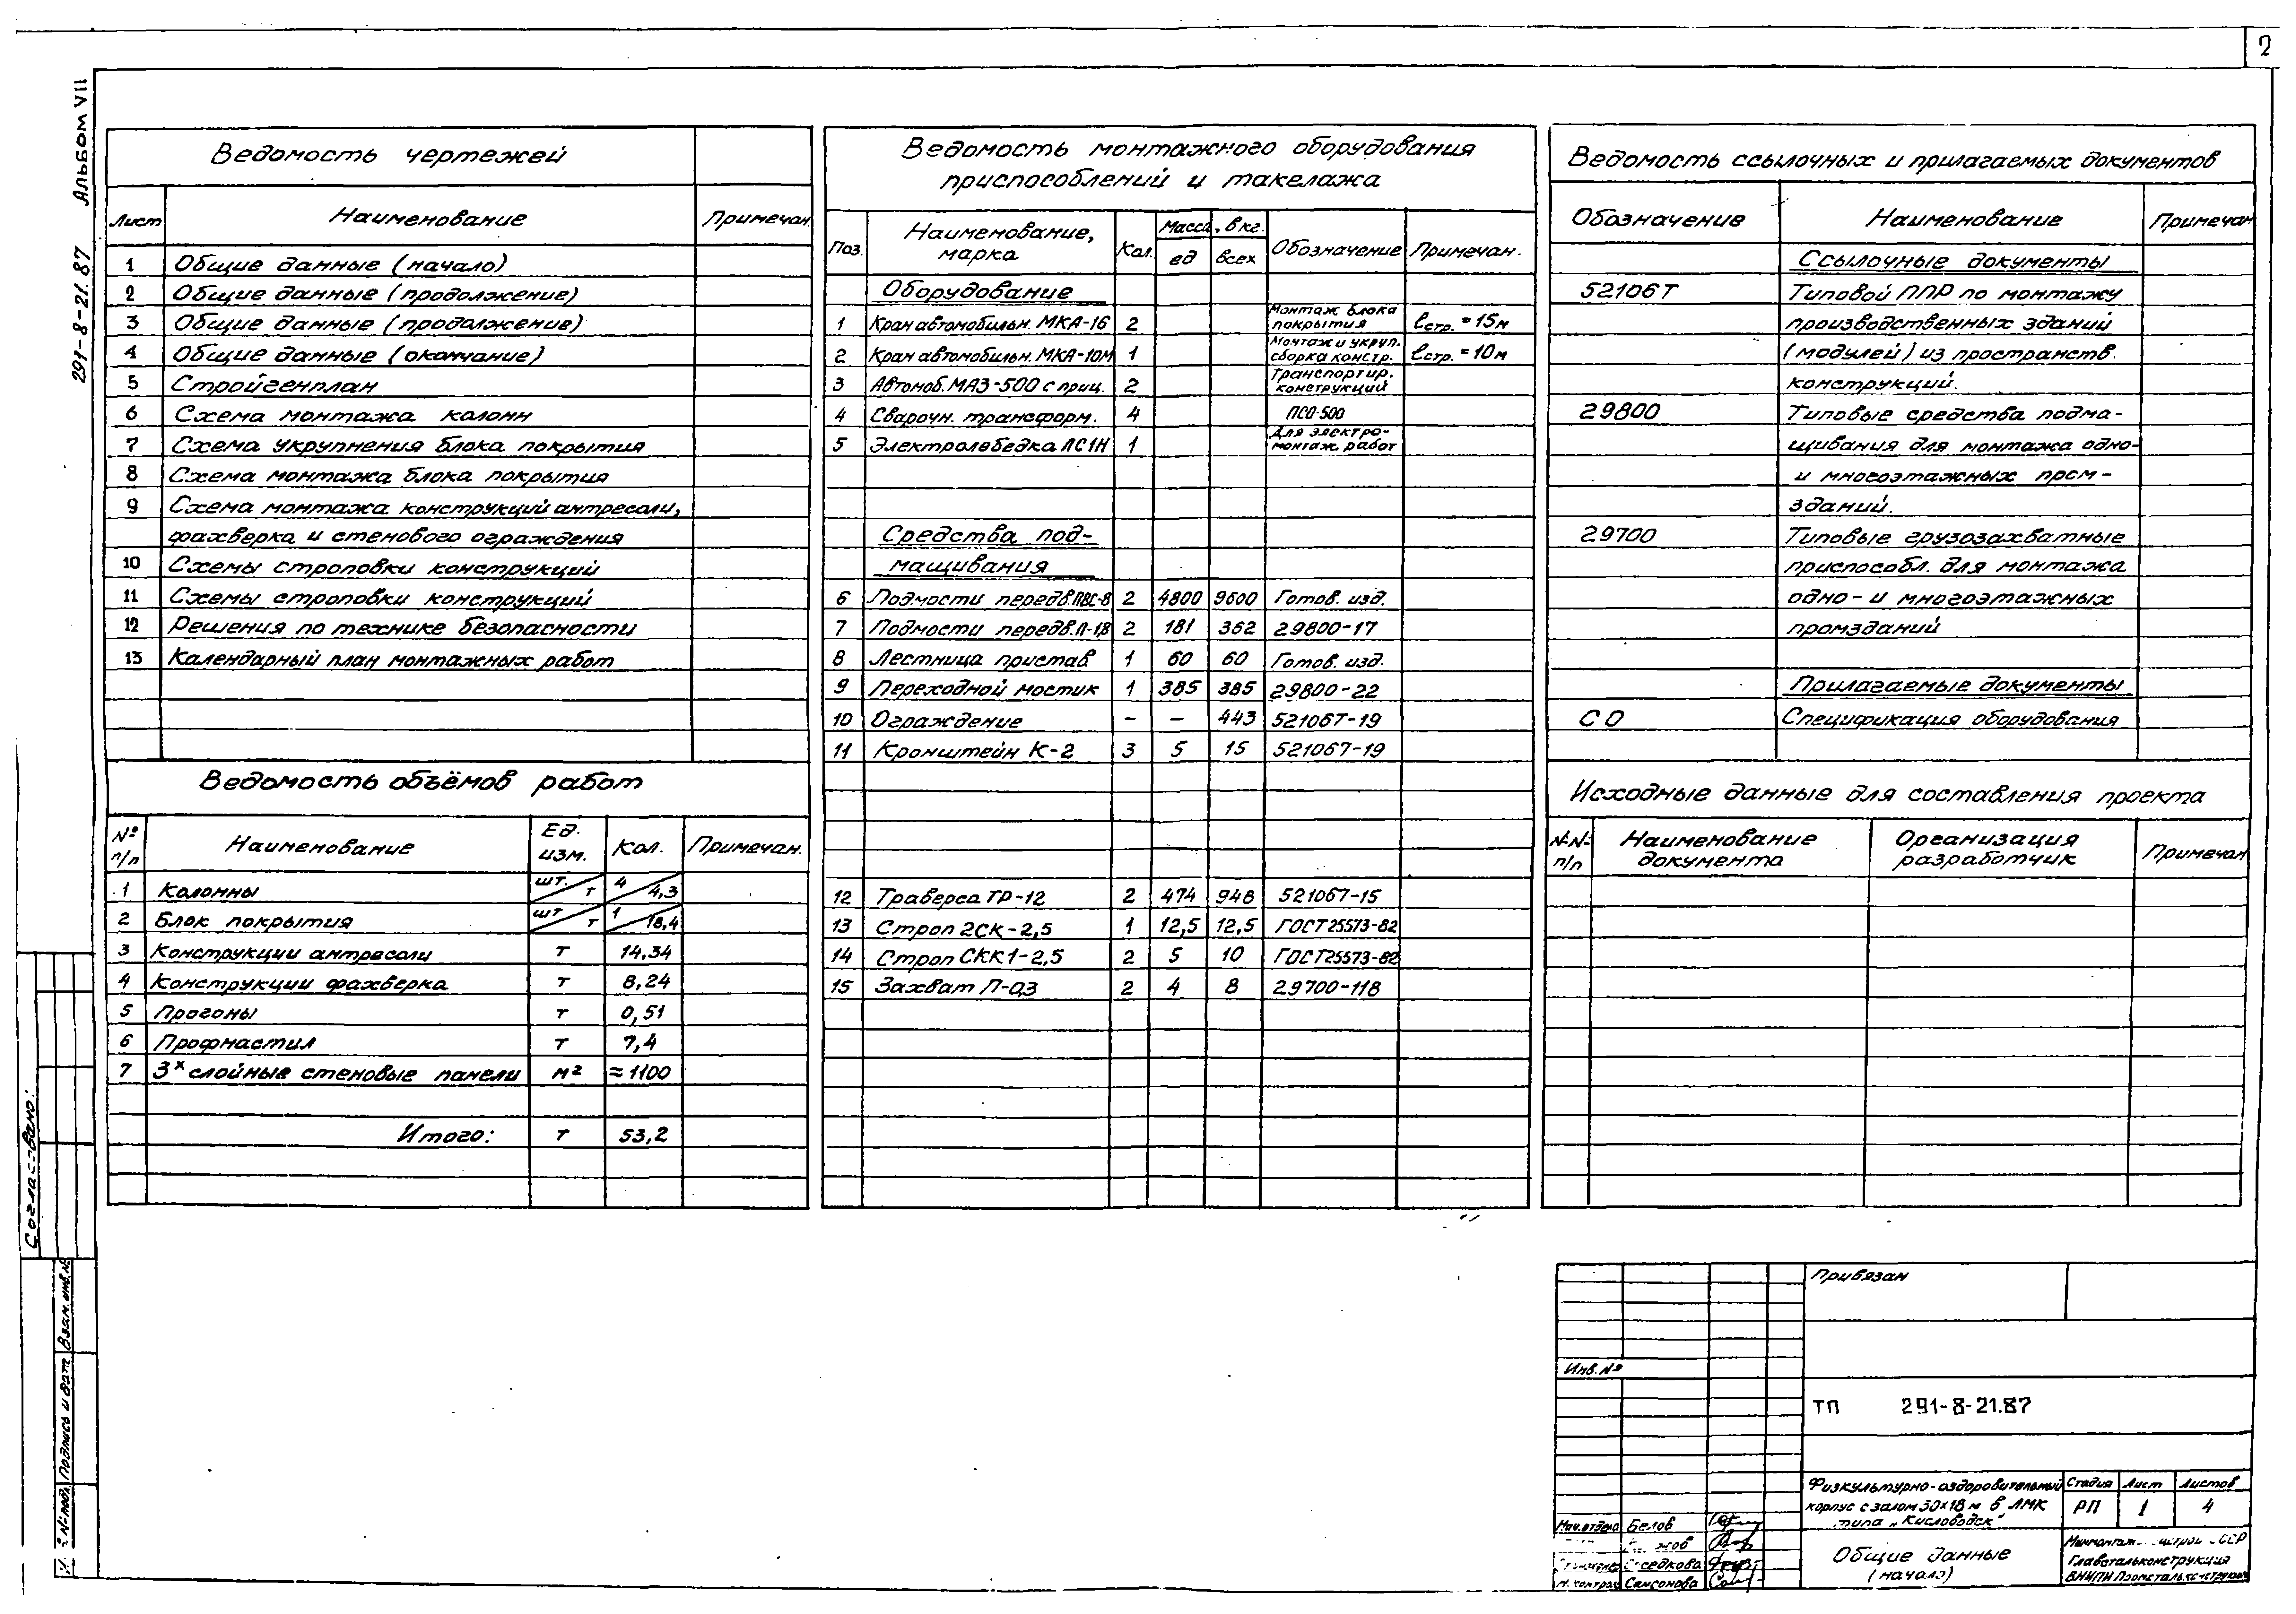 2
Альбом VII
291-8-21.87
Ведомость чертежей
Лист Наименование Примечан.
1 Общие данные (начало)
2 Общие данные (продолжение)
3 Общие данные (продолжение)
4 Общие данные (окончание)
5 Стройгенплан
6 Схема монтажа колонн
7 Схема укрупнения блока покрытия
8 Схема монтажа блока покрытия
9 Схема монтажа конструкций антресоли,
фахверка и стенового ограждения
10 Схемы строповки конструкций
11 Схемы строповки конструкций
12 Решения по технике безопасности
13 Календарный план монтажных работ
Ведомость объёмов работ
№ п/п Наименование Ед. изм. Кол. Примечан.
1 Колонны шт./т 4/4,3
2 Блок покрытия шт/т 1/18,4
3 Конструкции антресоли т 14,34
4 Конструкции фахверка т 8,24
5 Прогоны т 0,51
6 Профнастил т 7,4
7 3х слойные стеновые панели м² ≈1100
Итого: т 53,2
Ведомость монтажного оборудования
приспособлений и такелажа
Поз. Наименование, марка Кол. Масса, в кг. ед всех Обозначение Примечан.
Оборудование
1 Кран автомобильн. МКА-16 2 Монтаж блока покрытия ℓстр. = 15м
2 Кран автомобильн. МКА-10М 1 Монтаж и укруп. сборка констр. ℓстр. = 10м
3 Автомоб. МАЗ-500 с приц. 2 Транспортир. конструкций
4 Сварочн. трансформ. 4 ПСО-500
5 Электролебедка ЛС1Н 1 Для электро-монтаж. работ
Средства под-
мащивания
6 Подмости передв. ПВС-8 2 4800 9600 Готов. изд.
7 Подмости передв. П-1,8 2 181 362 29800-17
8 Лестница пристав 1 60 60 Готов. изд.
9 Переходной мостик 1 385 385 29800-22
10 Ограждение – – 443 52106Т-19
11 Кронштейн К-2 3 5 15 52106Т-19
12 Траверса ТР-12 2 474 948 52106Т-15
13 Строп 2СК-2,5 1 12,5 12,5 ГОСТ 25573-82
14 Строп СКК1-2,5 2 5 10 ГОСТ 25573-82
15 Захват П-0,3 2 4 8 29700-118
Ведомость ссылочных и прилагаемых документов
Обозначение Наименование Примечан
Ссылочные документы
52106Т Типовой ППР по монтажу
производственных зданий
(модулей) из пространств.
конструкций.
29800 Типовые средства подма-
щивания для монтажа одно-
и многоэтажных пром-
зданий.
29700 Типовые грузозахватные
приспособл. для монтажа
одно- и многоэтажных
промзданий
Прилагаемые документы
СО Спецификация оборудования
Исходные данные для составления проекта
№№ п/п Наименование документа Организация разработчик Примечан
Согласовано:
Взам. инв. №
Подпись и дата
№ подл.
Привязан
Инв. №
ТП 291-8-21.87
Физкультурно-оздоровительный
корпус с залом 30×18 м в ЛМК
типа „Кисловодск"
Стадия Лист Листов
РП 1 4
Нач. отдела Белов
Н. контрол Самсонова
Общие данные
(начало)
Главстальконструкция
ВНИПИ Промстальконструкция